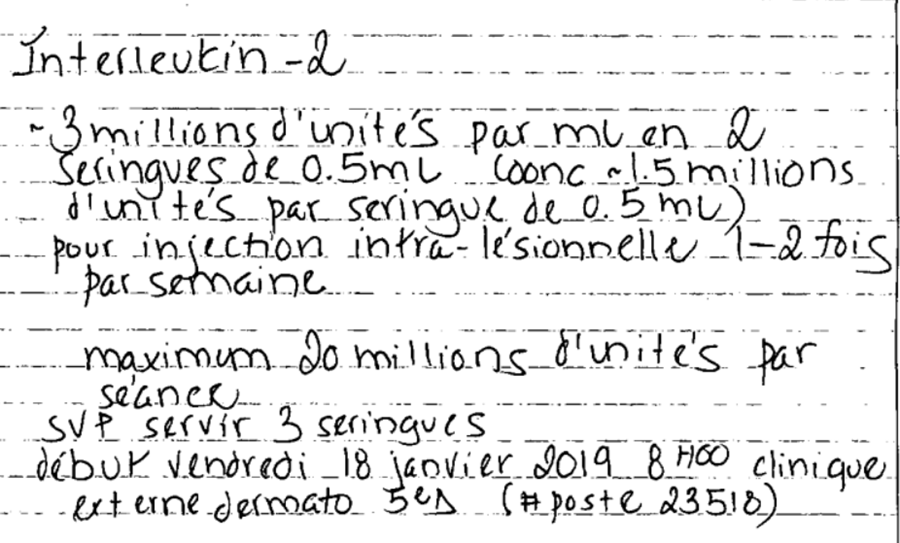 Interleukin-2
~3 millions d'unités par mL en 2
seringues de 0.5mL (donc ~1.5 millions
d'unités par seringue de 0.5mL)
pour injection intra-lésionnelle 1-2 fois
par semaine
maximum 20 millions d'unités par
séance
SVP servir 3 seringues
début vendredi 18 janvier 2019 8H00 clinique
externe dermato 5es (#poste 23518)